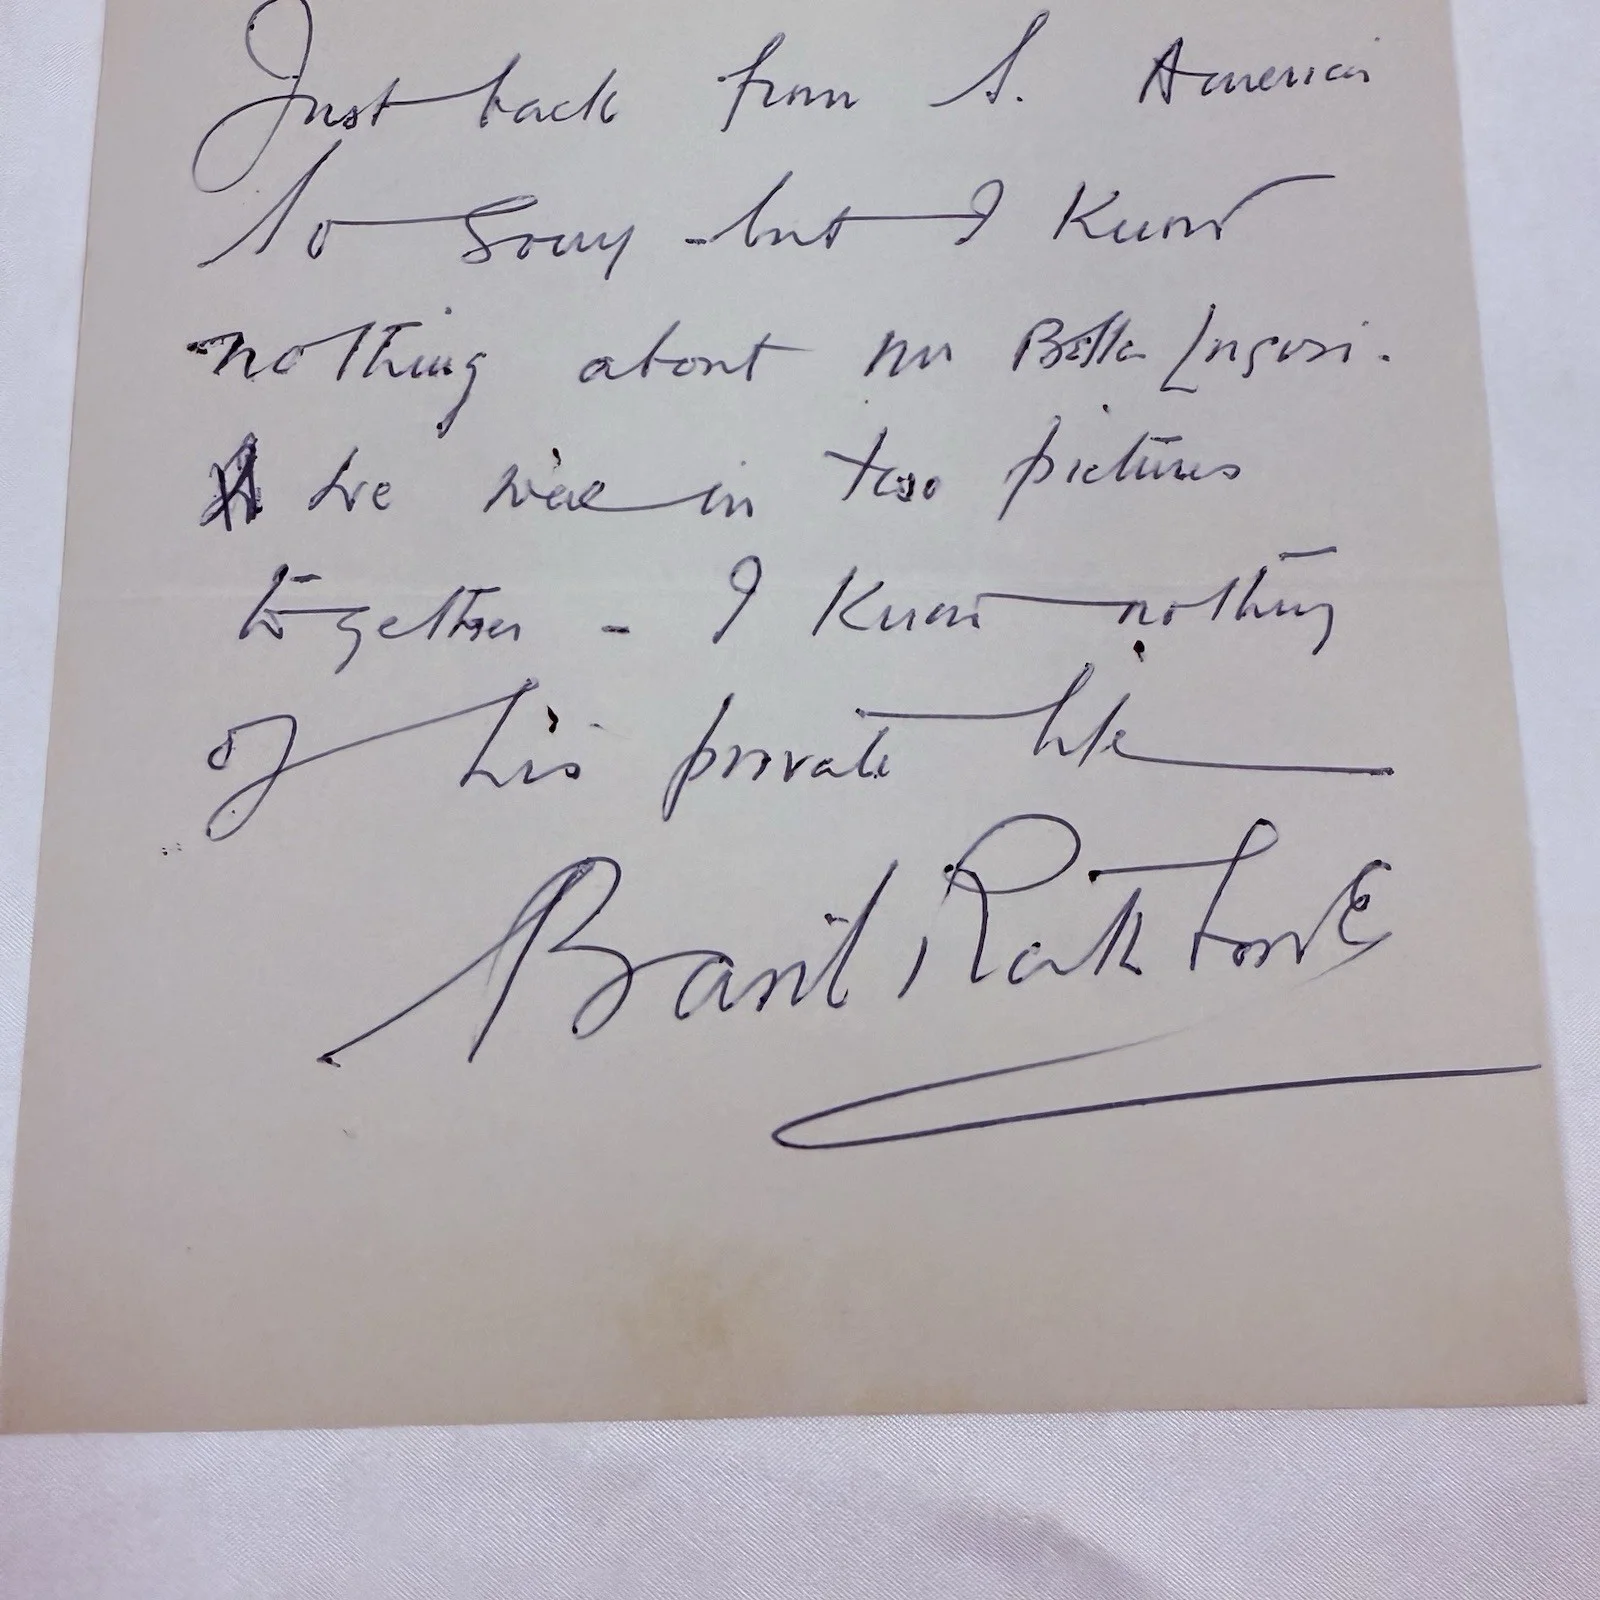 Just back from S. America
So Sorry - but I Know
nothing about Mr Bella Lugosi.
We were in two pictures
together - I Know nothing
of his private life
Basil Rathbone